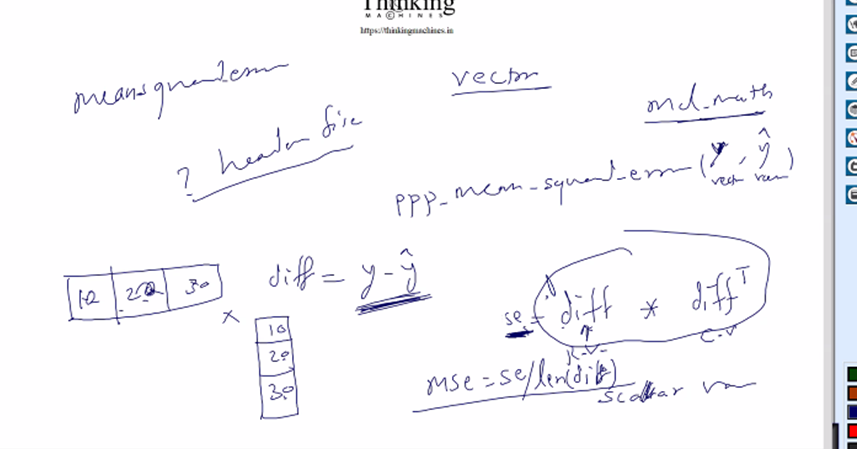 Thinking
MACHINES
https://thinkingmachines.in
mean squared error
vector
md_math
? header file
ppp_mean_squared_error (y, ŷ)
vector
10 20 30
×
10
20
30
diff = y - ŷ
se = diff * diffᵀ
R.V.
C.V
mse = se/len(diff)
scalar